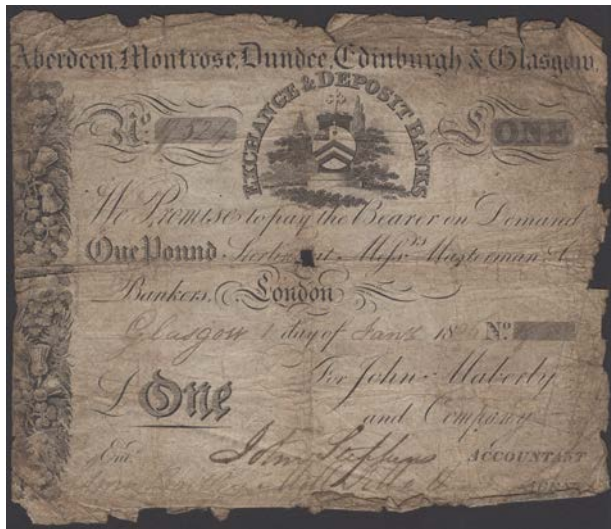 Aberdeen, Montrose, Dundee, Edinburgh & Glasgow,
EXCHANGE & DEPOSIT BANKS
No. 1324 £ONE
We Promise to pay the Bearer on Demand
One Pound Sterling at Messrs Masterman &
Bankers, London
Glasgow 1 day of Jany 18 No.
£ One For John Maberly
and Company
Ent. John Stephens ACCOUNTANT
AGENT